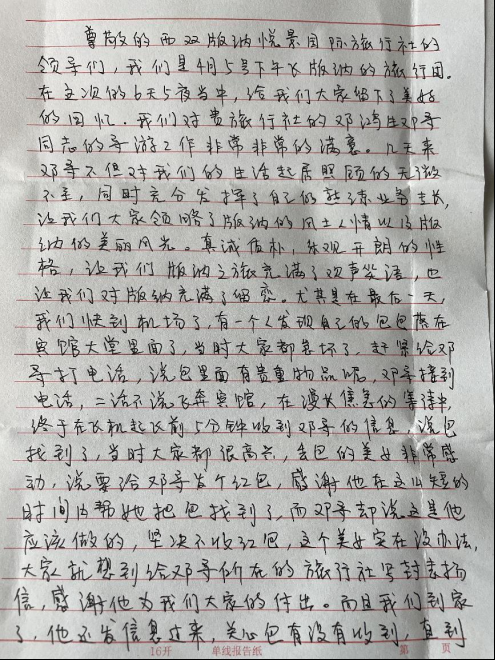 尊敬的西双版纳悦景国际旅行社的
领导们，我们是4月5号下午飞版纳的旅行团。
在这次的6天5夜当中，给我们大家留下了美好
的回忆。我们对贵旅行社的邓鸿生邓导
同志的导游工作非常非常的满意。几天来
邓导不但对我们的生活起居照顾的无微
不至，同时充分发挥了自己的熟练业务专长，
让我们大家领略了版纳的风土人情以及版
纳的美丽风光。真诚质朴，乐观开朗的性
格，让我们版纳之旅充满了欢声笑语，也
让我们对版纳充满了留恋。尤其是在最后一天，
我们快到机场了，有一个人发现自己的包包落在
宾馆大堂里面了，当时大家都急坏了，赶紧给邓
导打电话，说包里面有贵重物品呢，邓导接到
电话，二话不说飞奔宾馆，在漫长焦急的等待中，
终于在飞机起飞前5分钟收到邓导的信息，说包
找到了，当时大家都很高兴，丢包的美女非常感
动，说要给邓导发个红包，感谢他在这么短的
时间内帮她把包找到了，而邓导却说这是他
应该做的，坚决不收红包，这个美女实在没办法，
大家就想到给邓导所在的旅行社写封表扬
信，感谢他为我们大家的付出。而且我们到家
了，他还发信息过来，关心包有没有收到，直到
16开 单线报告纸 第 页